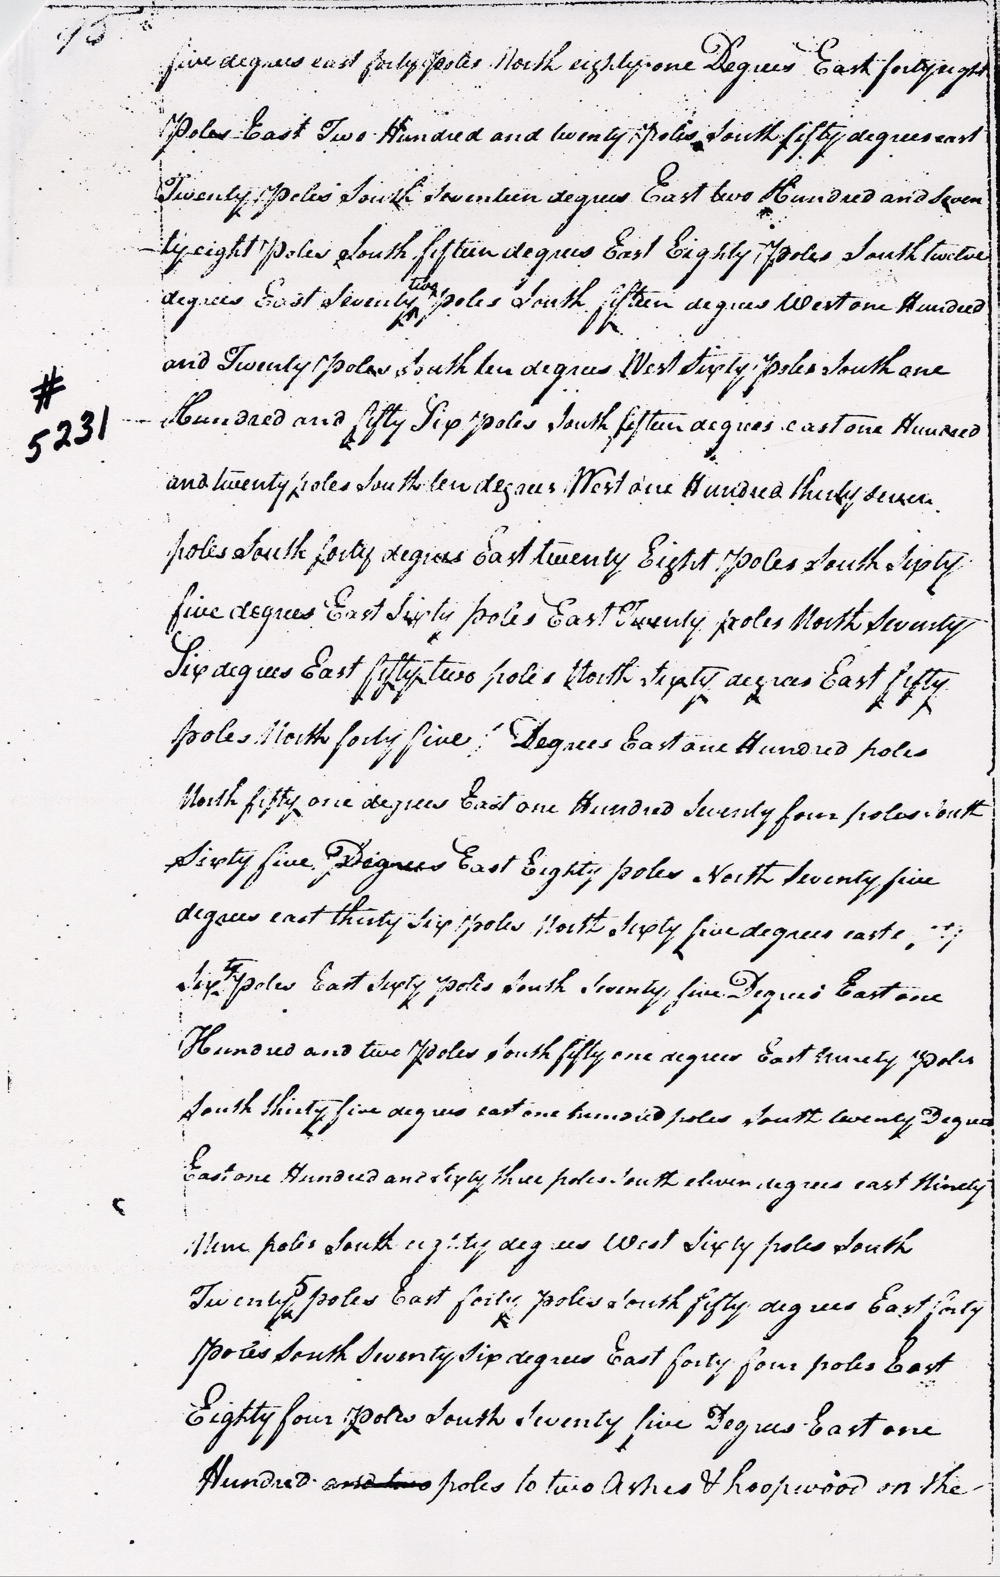 95
five degrees east forty poles North eighty one Degrees East forty eight
Poles East Two Hundred and twenty Poles South fifty degrees east
Twenty Poles South Seventeen degrees East two Hundred and Seven
ty eight Poles South fifteen degrees East Eighty Poles South twelve
degrees East Seventy two poles South fifteen degrees West one Hundred
and Twenty Poles South ten degrees West Sixty Poles South one
#
5231
Hundred and fifty Six Poles South fifteen degrees east one Hundred
and twenty poles South ten degrees West one Hundred thirty seven
poles South forty degrees East twenty Eight Poles South Sixty
five degrees East Sixty poles East Twenty poles North Seventy
Six degrees East fifty two poles North Sixty degrees East fifty
poles North forty five Degrees East one Hundred poles
North fifty one degrees East one Hundred Seventy four poles South
Sixty five Degrees East Eighty poles North Seventy five
degrees east thirty Six Poles North Sixty five degrees east
Sixty Poles East Sixty poles South Seventy five Degrees East one
Hundred and two Poles South fifty one degrees East ninety Poles
South thirty five degrees east one hundred poles South twenty Degrees
East one Hundred and Sixty three poles South eleven degrees east Ninety
Nine poles South eighty degrees West Sixty poles South
Twenty 5 poles East forty Poles South fifty degrees East forty
Poles South Seventy Six degrees East forty four poles East
Eighty four Poles South Seventy five Degrees East one
Hundred and two poles to two Ashes & hoopwood on the